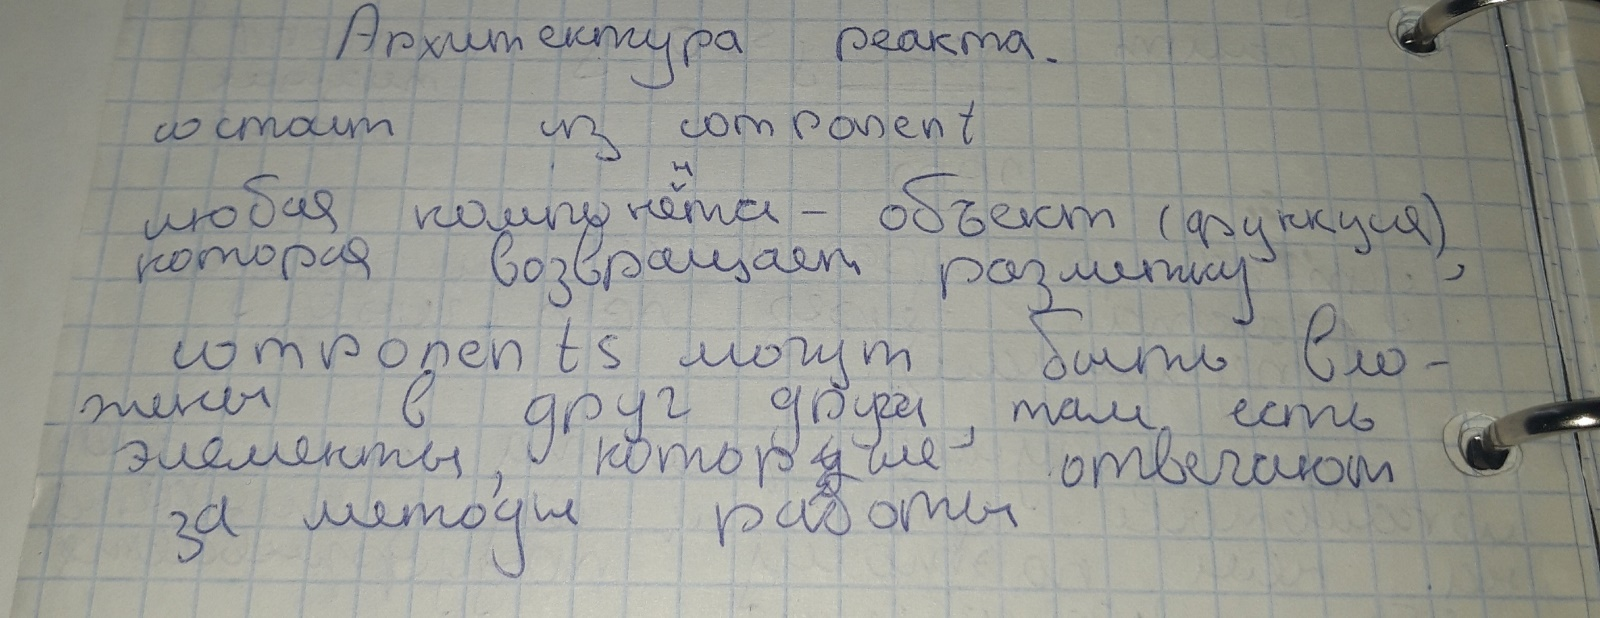 Архитектура реакта.
состоит из component
любая компонента – объект (функция),
которая возвращает разметку
components могут быть вло-
жены в друг друга, там есть
элементы, которые отвечают
за методы работы